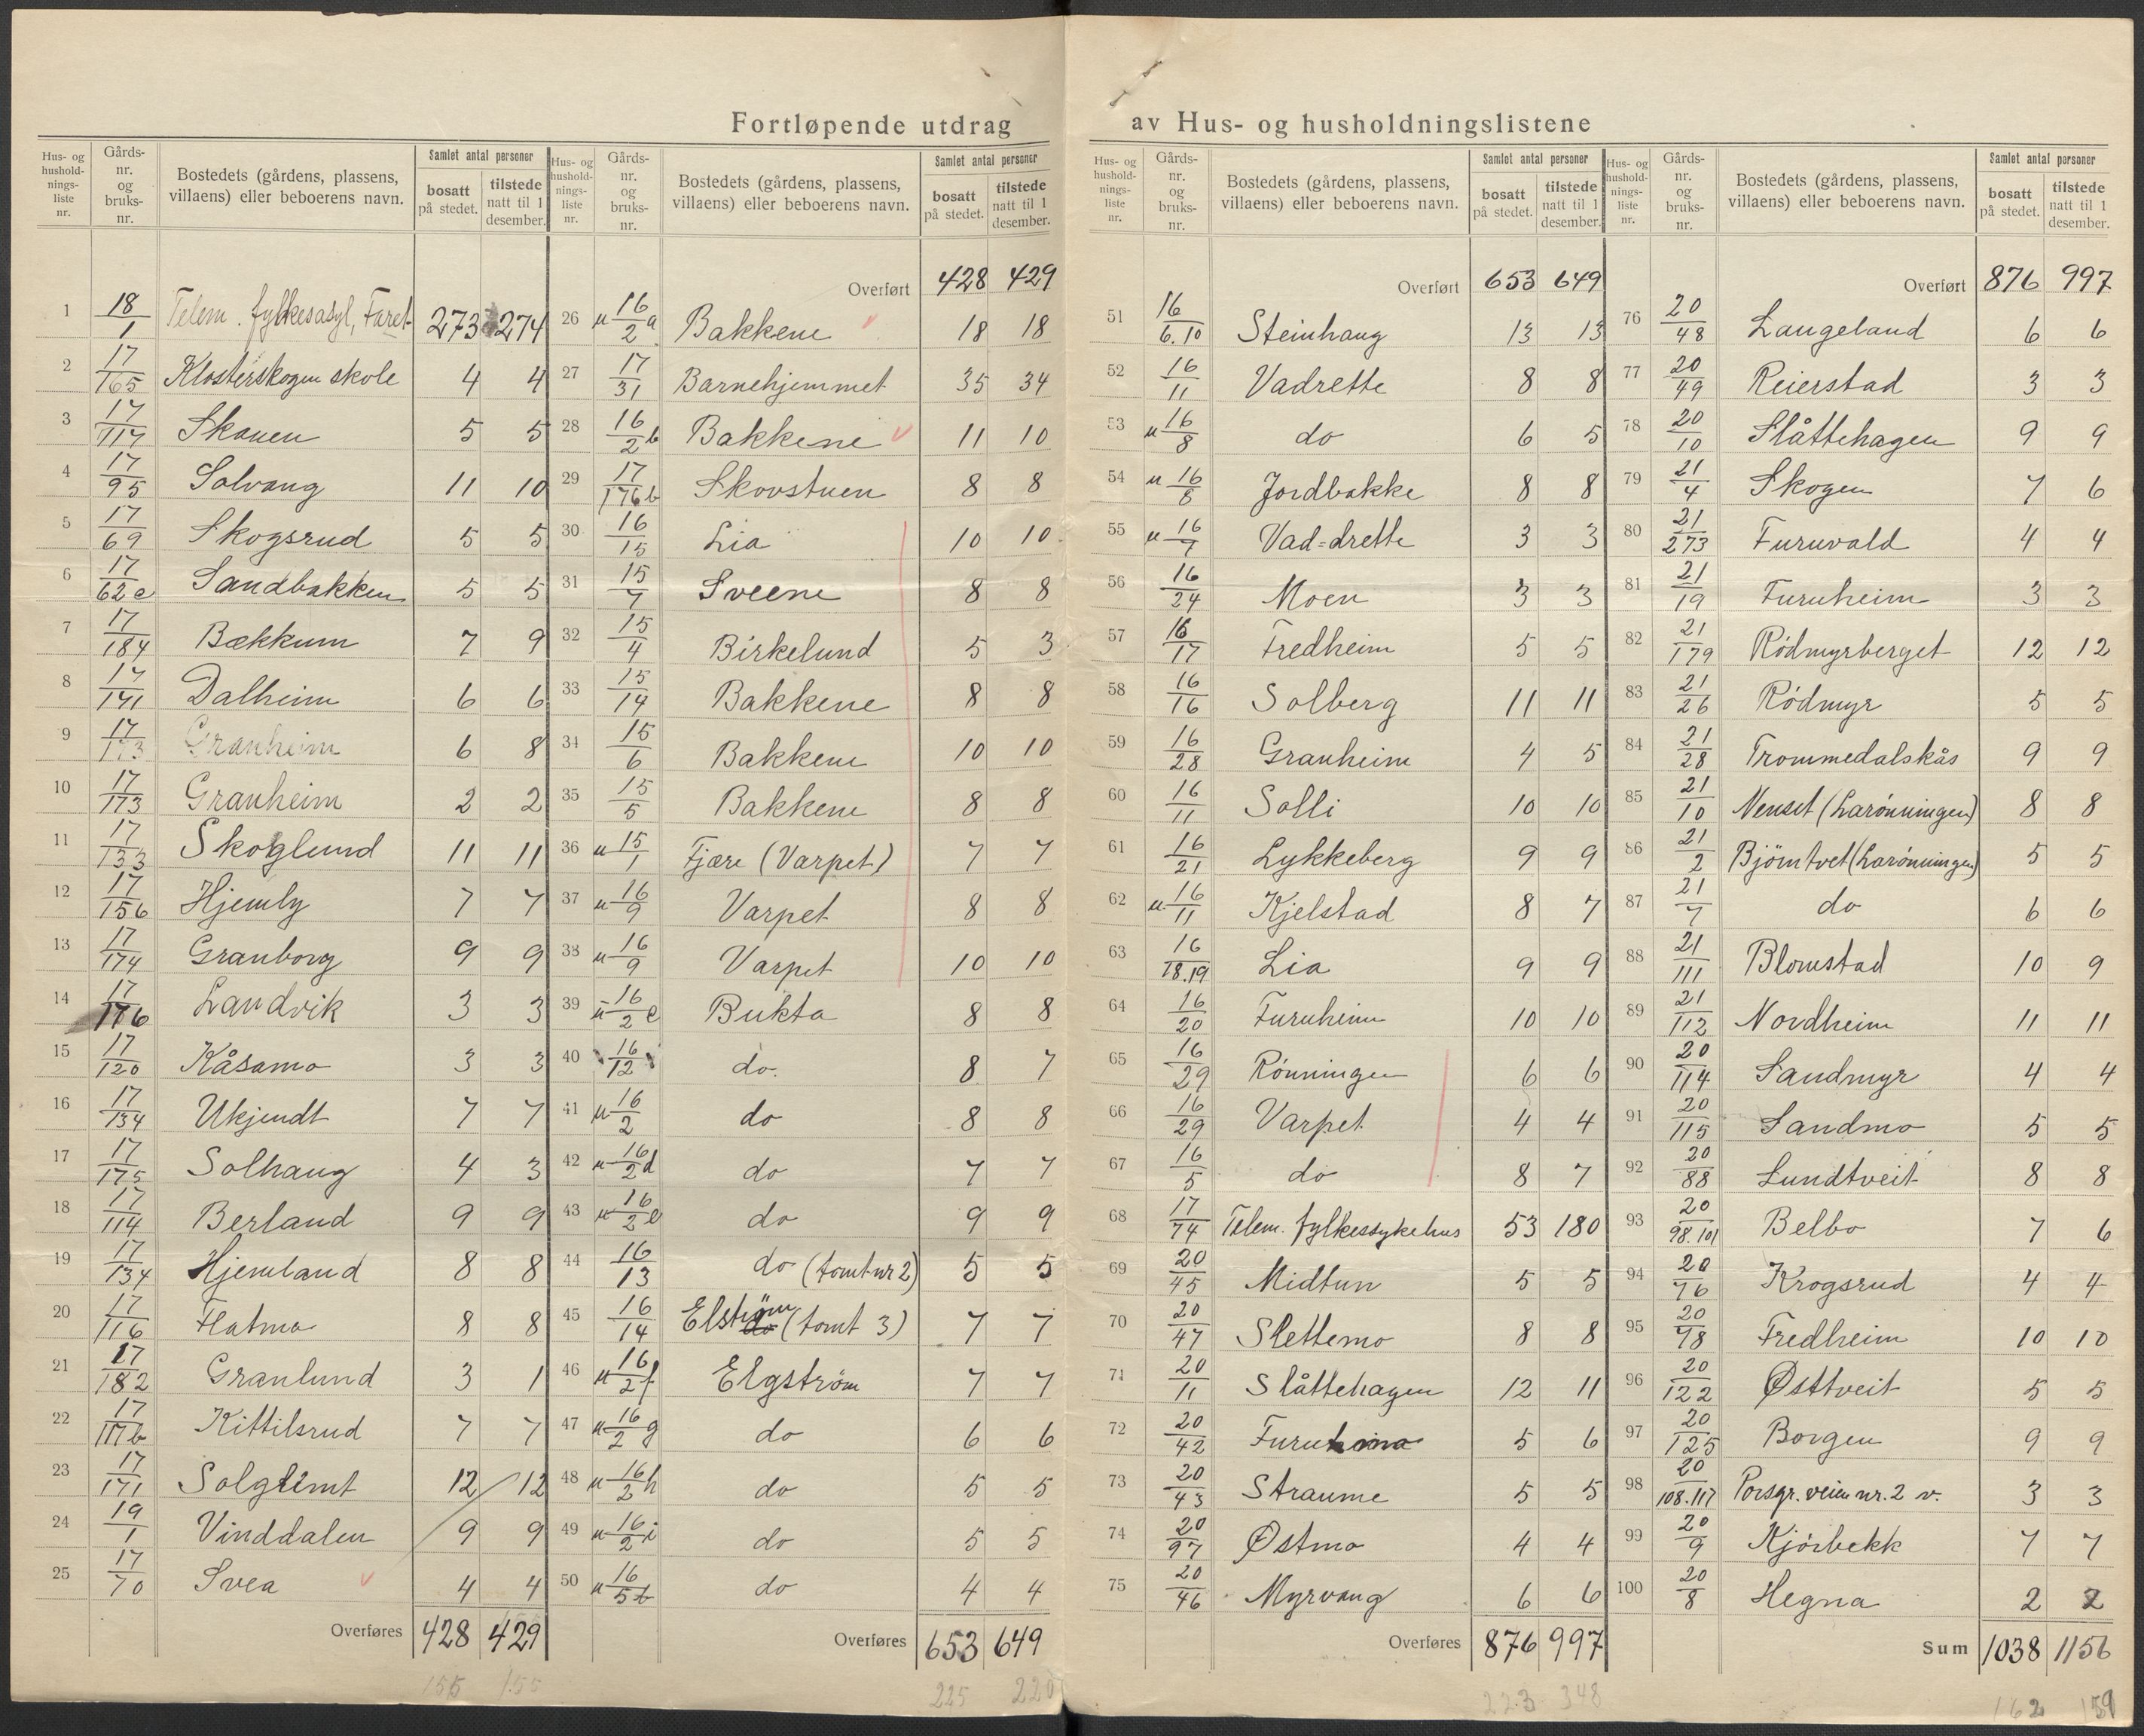 Fortløpende utdrag av Hus- og husholdningslistene
Hus- og hushold-nings-liste nr. | Gårds-nr. og bruks-nr. | Bostedets (gårdens, plassens, villaens) eller beboerens navn. | Samlet antal personer | bosatt på stedet. | tilstede natt til 1 desember.
1 18/1 Telem. fylkesasyl, Faret 273 274
2 17/165 Klosterskogen skole 4 4
3 17/117 Skauen 5 5
4 17/95 Solvang 11 10
5 17/69 Skogsrud 5 5
6 17/62c Sandbakken 5 5
7 17/184 Bækkum 7 9
8 17/141 Dalheim 6 6
9 17/173 Granheim 6 8
10 17/173 Granheim 2 2
11 17/133 Skoglund 11 11
12 17/156 Hjemly 7 7
13 17/174 Granborg 9 9
14 17/176 Landvik 3 3
15 17/120 Kåsamo 3 3
16 17/134 Ukjendt 7 7
17 17/175 Solhaug 4 3
18 17/114 Berland 9 9
19 17/134 Hjemland 8 8
20 17/116 Flatmo 8 8
21 17/182 Granlund 3 1
22 17/117b Kittilsrud 7 7
23 17/171 Solglimt 12 12
24 19/1 Vinddalen 9 9
25 17/70 Svea 4 4
Overføres 428 429
155 155
Hus- og hushold-nings-liste nr. | Gårds-nr. og bruks-nr. | Bostedets (gårdens, plassens, villaens) eller beboerens navn. | Samlet antal personer | bosatt på stedet. | tilstede natt til 1 desember.
Overført 428 429
26 u 16/2 a Bakkene 18 18
27 17/31 Barnehjemmet 35 34
28 16/2 b Bakkene 11 10
29 17/176b Skovstuen 8 8
30 16/15 Lia 10 10
31 15/7 Sveene 8 8
32 15/4 Birkelund 5 3
33 15/14 Bakkene 8 8
34 15/6 Bakkene 10 10
35 15/5 Bakkene 8 8
36 u 15/1 Fjære (Varpet) 7 7
37 u 16/9 Varpet 8 8
38 u 16/9 Varpet 10 10
39 u 16/2 c Bukta 8 8
40 16/12 do. 8 7
41 u 16/2 do 8 8
42 u 16/2 d do 7 7
43 u 16/2 e do 9 9
44 16/13 do (tomt nr 2) 5 5
45 16/14 Elstrøm (tomt 3) 7 7
46 u 16/2 f Elgstrøm 7 7
47 u 16/2 g do 6 6
48 u 16/2 h do 5 5
49 u 16/2 i do 5 5
50 u 16/5b do 4 4
Overføres 653 649
225 220
Hus- og hushold-nings-liste nr. | Gårds-nr. og bruks-nr. | Bostedets (gårdens, plassens, villaens) eller beboerens navn. | Samlet antal personer | bosatt på stedet. | tilstede natt til 1 desember.
Overført 653 649
51 16/6.10 Steinhaug 13 13
52 16/11 Vadrette 8 8
53 u 16/8 do 6 5
54 u 16/8 Jordbakke 8 8
55 u 16/7 Vad=drette 3 3
56 16/24 Moen 3 3
57 16/17 Fredheim 5 5
58 16/16 Solberg 11 11
59 16/28 Granheim 4 5
60 16/11 Solli 10 10
61 16/21 Lykkeberg 9 9
62 u 16/11 Kjelstad 8 7
63 16/18.19 Lia 9 9
64 16/20 Furuheim 10 10
65 16/29 Rønningen 6 6
66 16/29 Varpet 4 4
67 16/5 do 8 7
68 17/74 Telem. fylkessykehus 53 180
69 20/45 Midtun 5 5
70 20/47 Slettemo 8 8
71 20/11 Slåttehagen 12 11
72 20/42 5 6
73 20/43 Straume 5 5
74 20/97 Østmo 4 4
75 20/46 Myrvang 6 6
Overføres 876 997
223 348
Hus- og hushold-nings-liste nr. | Gårds-nr. og bruks-nr. | Bostedets (gårdens, plassens, villaens) eller beboerens navn. | Samlet antal personer | bosatt på stedet. | tilstede natt til 1 desember.
Overført 876 997
76 20/48 Langeland 6 6
77 20/49 Reierstad 3 3
78 20/10 Slåttehagen 9 9
79 21/4 Skogen 7 6
80 21/273 Furuvald 4 4
81 21/19 Furuheim 3 3
82 21/179 Rødmyrberget 12 12
83 21/26 Rødmyr 5 5
84 21/28 Trommedalskås 9 9
85 21/10 Nenset (Larønningen) 8 8
86 21/2 Bjørntvet (Larønningen) 5 5
87 21/7 do 6 6
88 21/111 Blomstad 10 9
89 21/112 Nordheim 11 11
90 20/114 Sandmyr 4 4
91 20/115 Sandmo 5 5
92 20/88 Lundtveit 8 8
93 20/98.101 Belbo 7 6
94 20/76 Krogsrud 4 4
95 20/78 Fredheim 10 10
96 20/122 Østtveit 5 5
97 20/125 Borgen 9 9
98 20/108.117 Porsgr. veien nr. 2 v. 3 3
99 20/9 Kjørbekk 7 7
100 20/8 Hegna 2 2
Sum 1038 1156
162 159